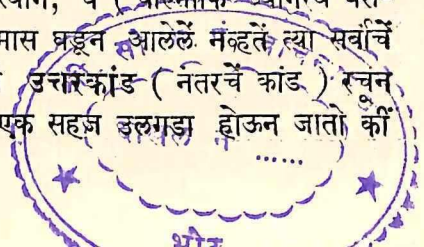 मास घडून आलेलें नव्हतें त्या सर्वांचें
उत्तरकांड ( नंतरचें कांड ) रचून
एक सहज उलगडा होऊन जातो कीं
......
भोर